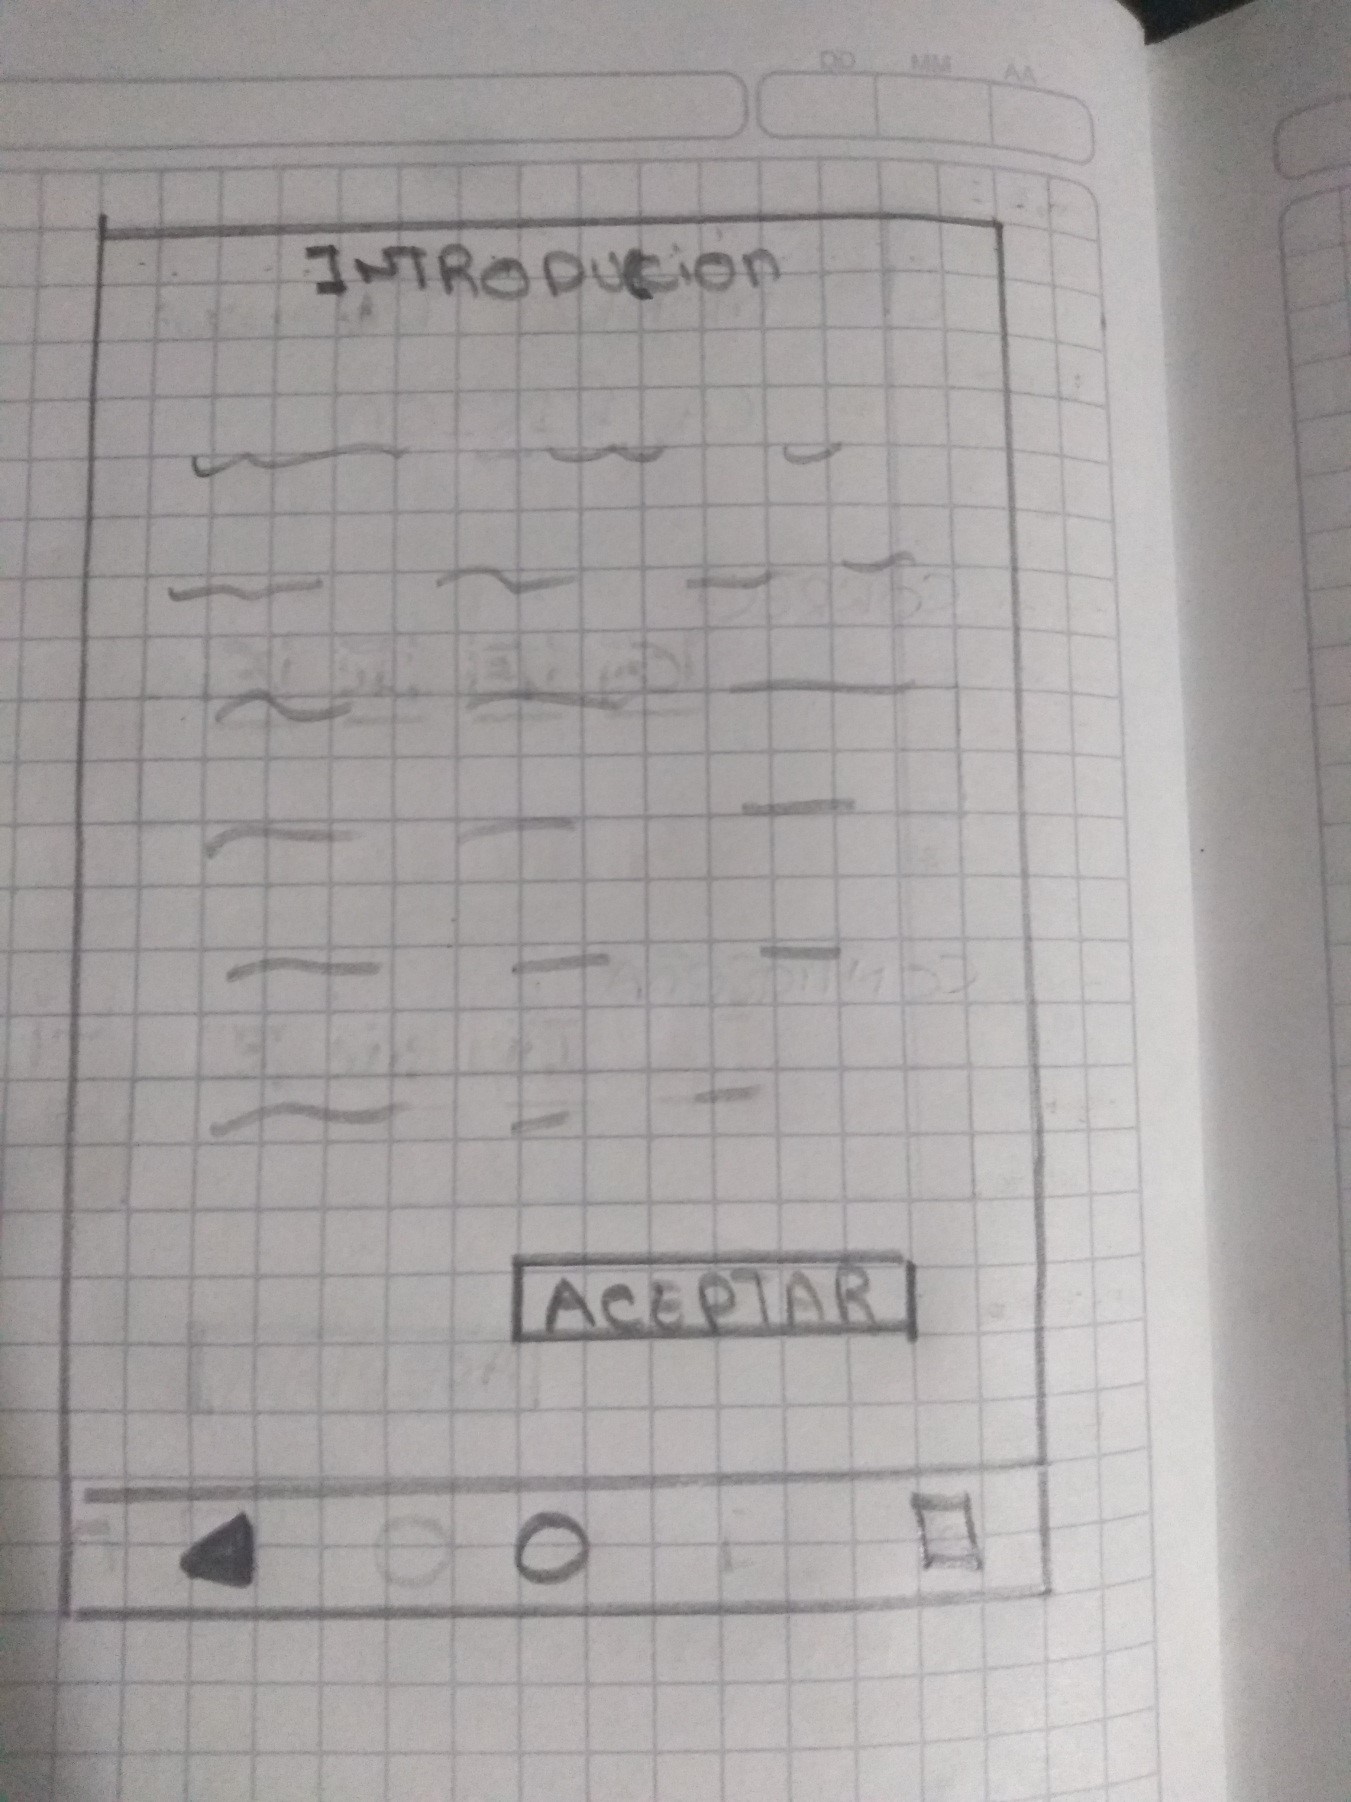 DD MM AA
INTRODUCiÓn
ACEPTAR